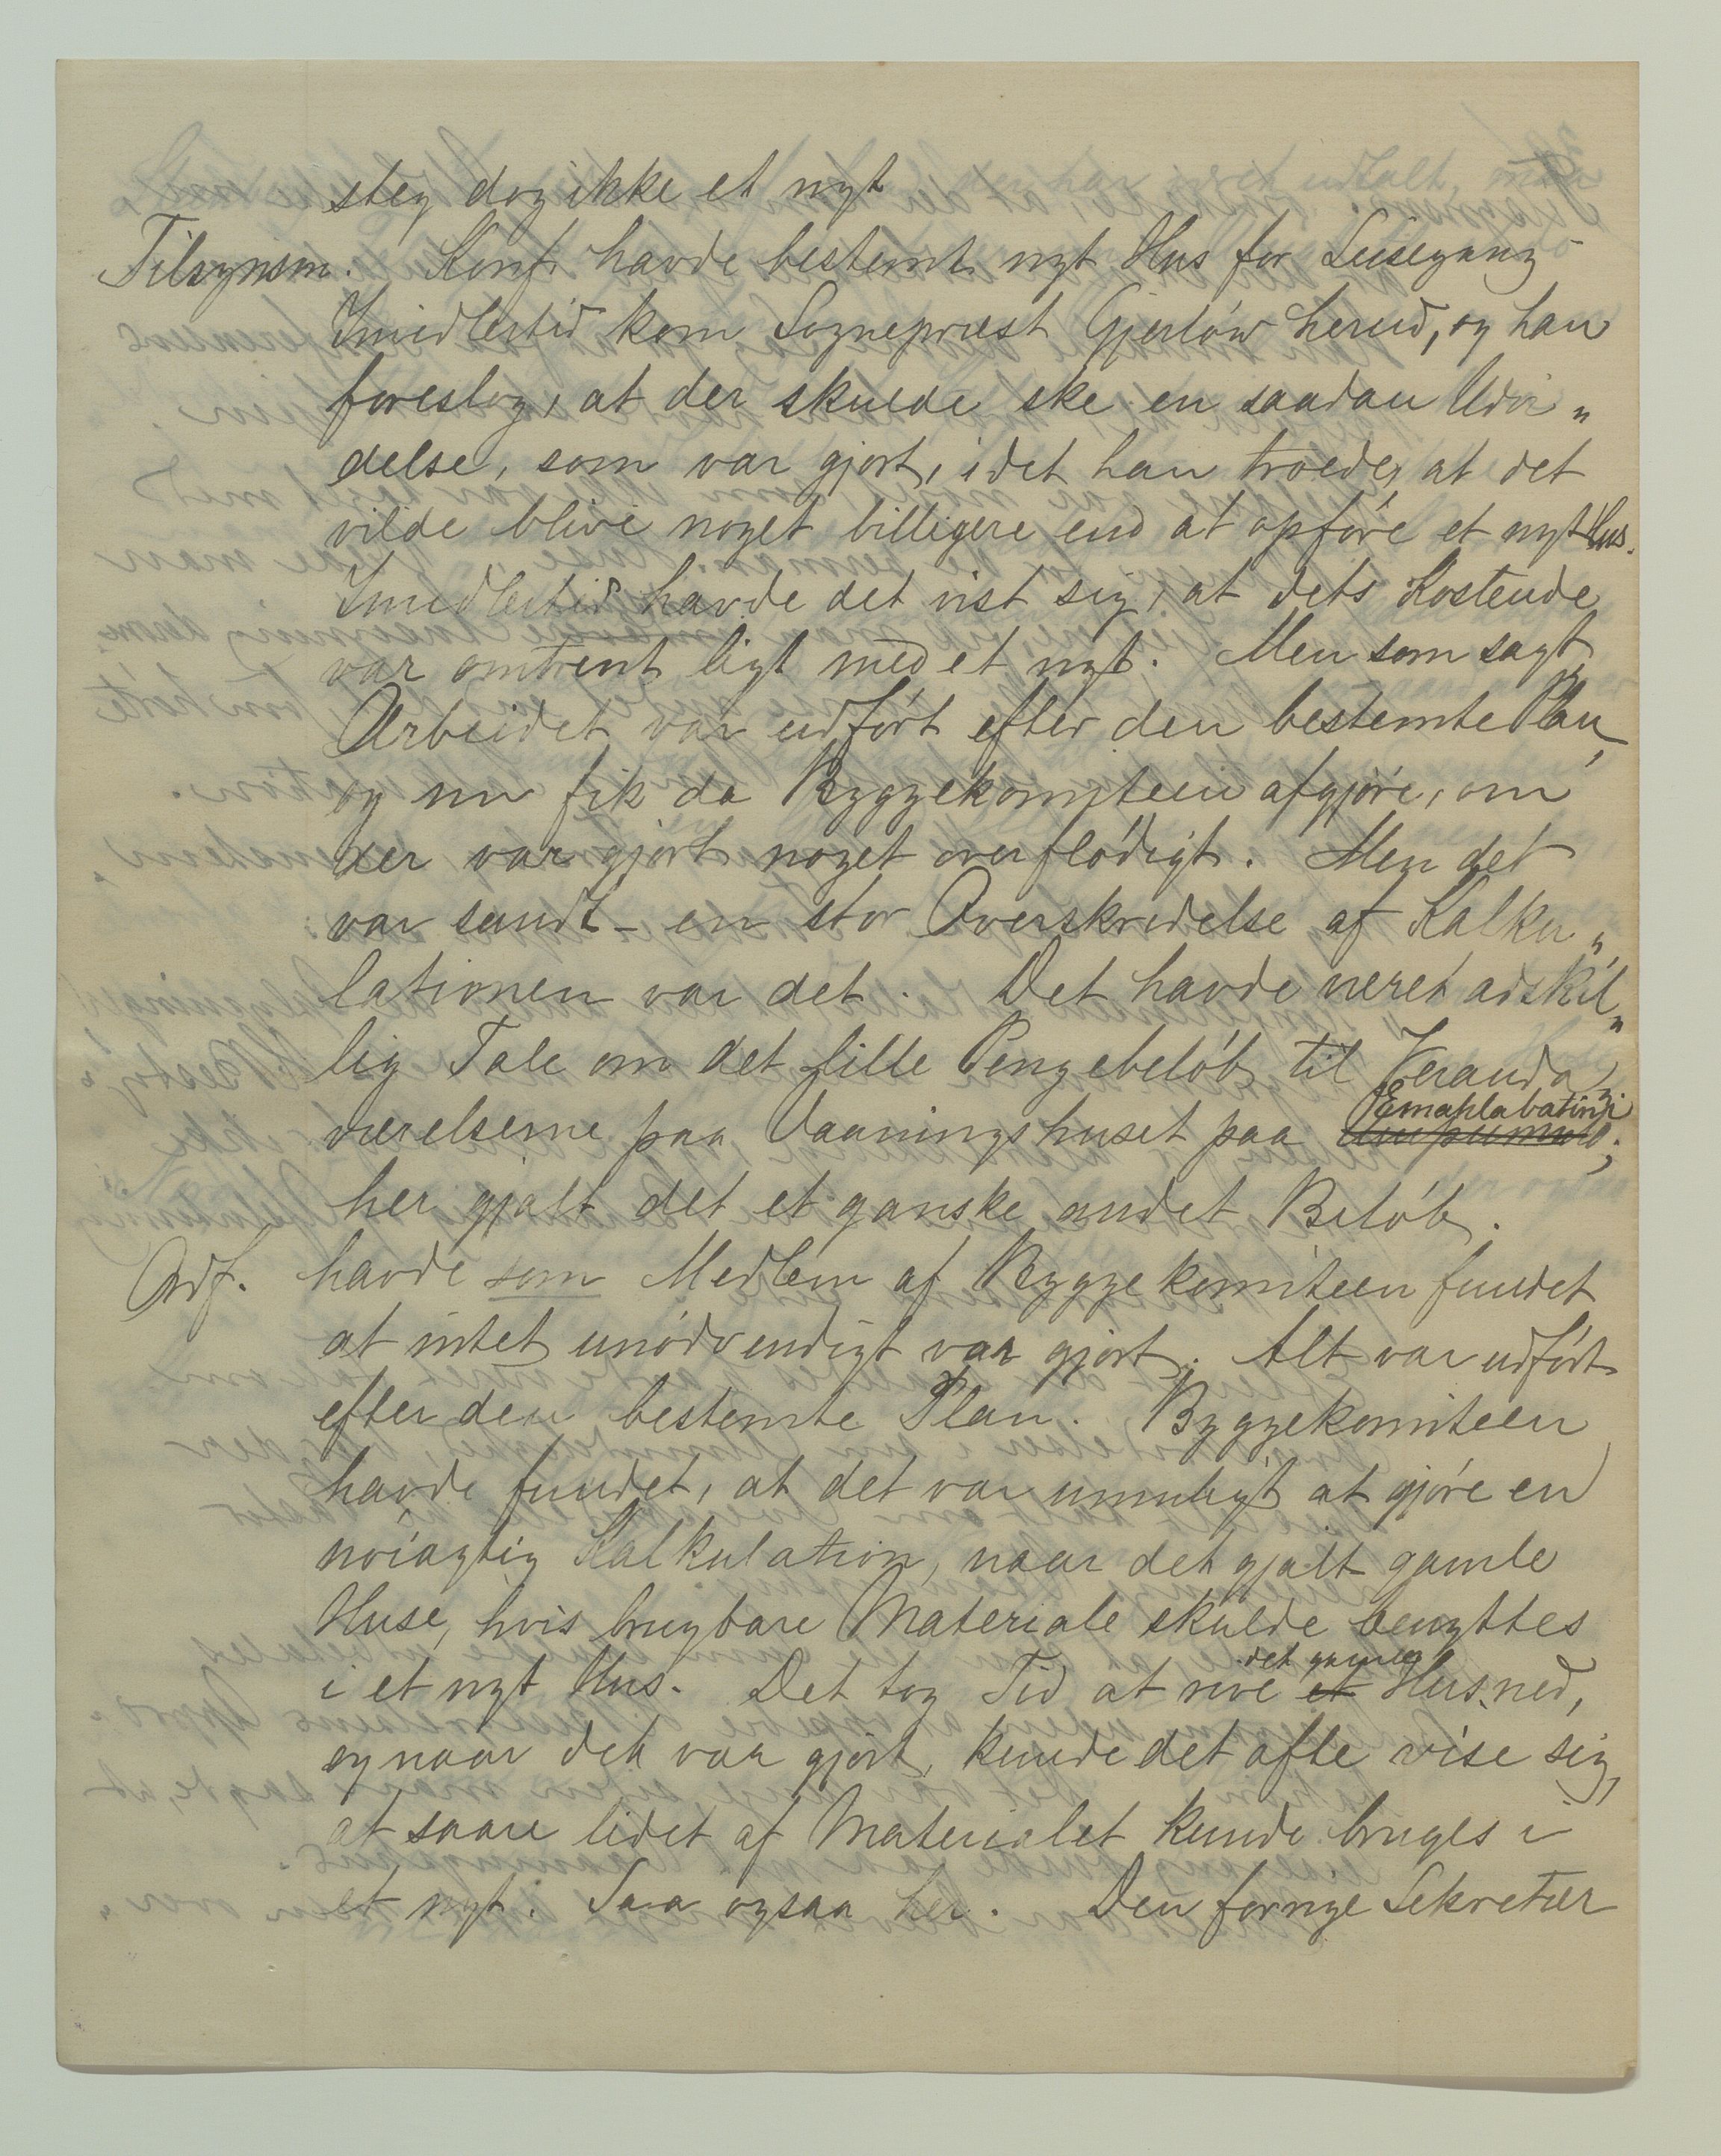 steg dog ikke et nyt
Tilsynsm. Konf. havde bestemt nyt Hus for Luisegang
Imidlertid kom Sogneprest Gjerløw herud, og han
foreslog, at der skulde ske en saadan Udvi„
delse, som var gjort, idet han troede, at det
vilde blive noget billigere end at opføre et nyt Hus.
Imidlertid havde det vist sig, at dets Kostende
var omtrent ligt med et nyt. Men som sagt,
Arbeidet var udført efter den bestemte Plan,
og nu fik da Byggekomiteen afgjøre, om
der var gjort noget overflødigt. Men det
var sandt – en stor Overskridelse af Kalku„
lationen var det. Det havde været adskil„
lig Tale om det lille Pengebeløb til Veranda„
værelserne paa Vaaningshuset paa Emahlabatini;
her gjalt det et ganske andet Beløb.
Ordf. havde som Medlem af Byggekomiteen fundet
at intet unødvendigt var gjort. Alt var udført
efter den bestemte Plan. Byggekomiteen
havde fundet, at det var umuligt at gjøre en
nøiagtig Kalkulation, naar det gjalt gamle
Huse, hvis brugbare Materiale skulde benyttes
i et nyt Hus. Det tog Tid at rive et det gamle Hus ned,
og naar det var gjort, kunde det ofte vise sig,
at saare lidet af Materialet kunde bruges i
et nyt. Saa ogsaa her. Den forrige Sekretær